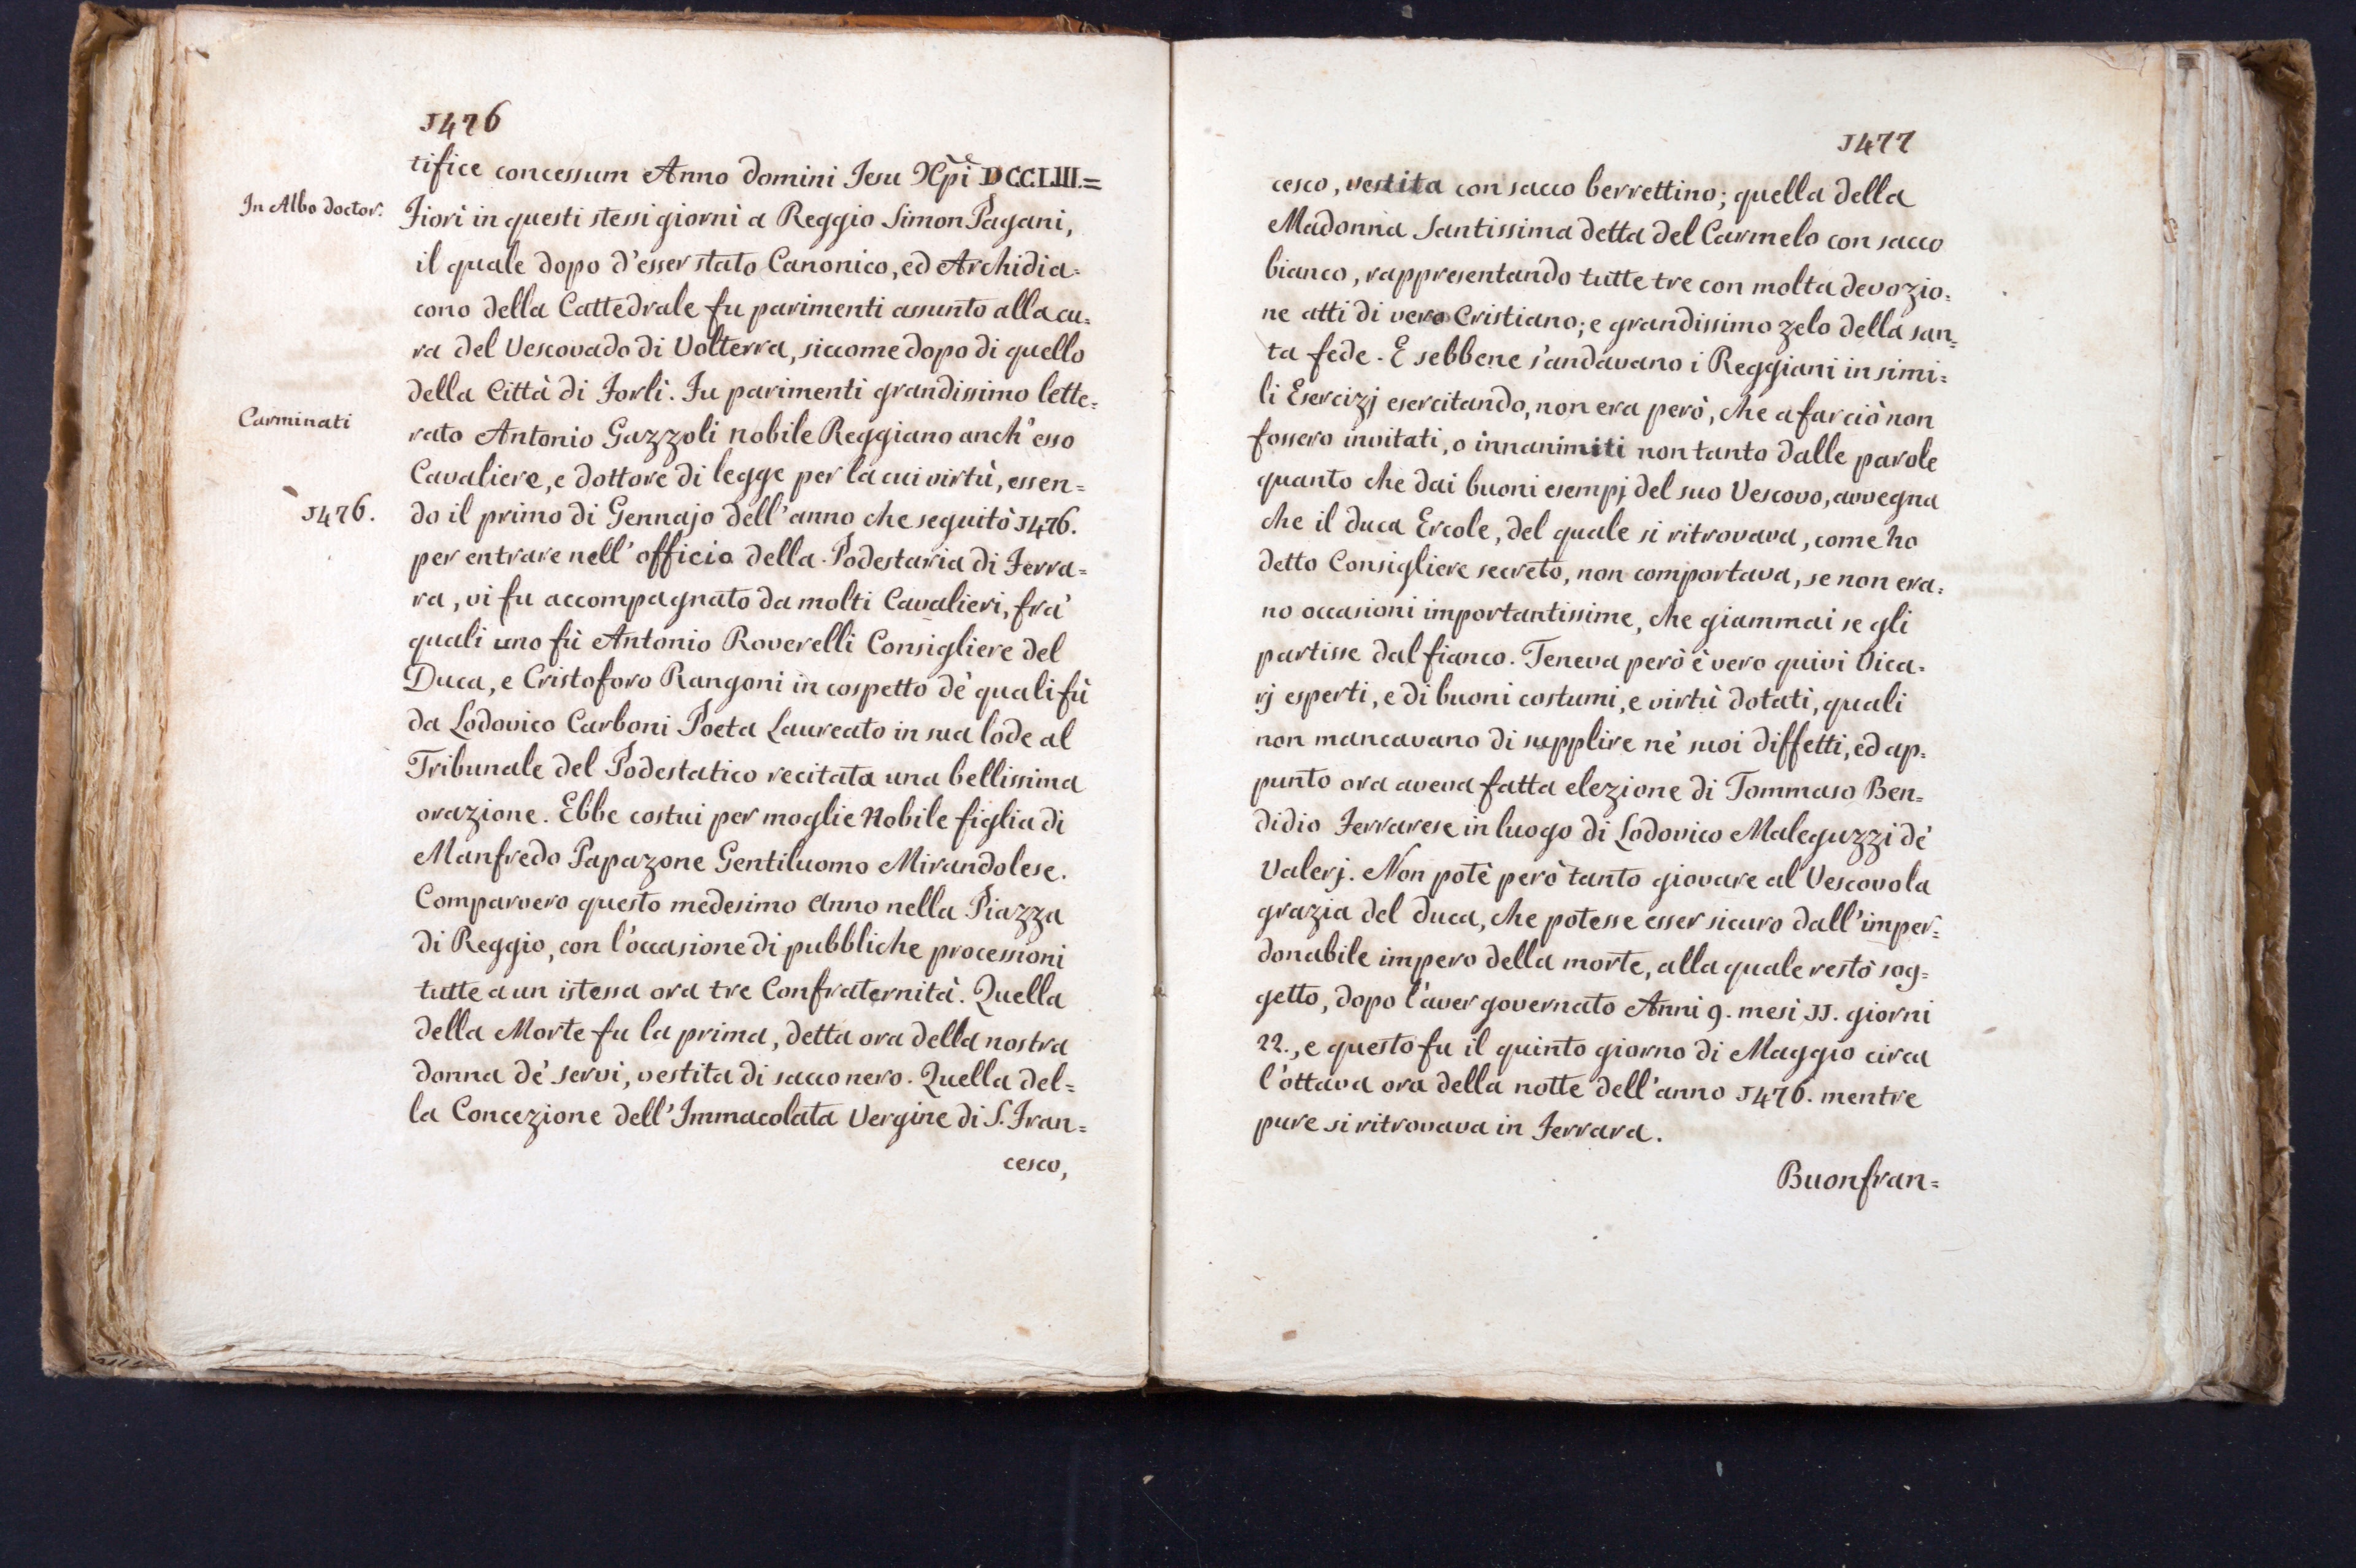 1476
tifice concessum Anno Domini Iesu Xp̃i DCCLIII.=
In Albo doctor.
Fiorì in questi stessi giorni a Reggio Simon Pagani,
il quale dopo d'esser stato Canonico, ed Archidia=
cono della Cattedrale fu parimenti assunto alla cu=
ra del Vescovado di Volterra, siccome dopo di quello
della Città di Forlì. Fu parimenti grandissimo lette=
Carminati
rato Antonio Gazzoli nobile Reggiano anch'esso
Cavaliere, e dottore di legge per la cui virtù, essen=
1476.
do il primo di Gennajo dell'anno che seguitò 1476.
per entrare nell'officio della Podestaria di Ferra=
ra, vi fu accompagnato da molti Cavalieri, fra'
quali uno fù Antonio Roverelli Consigliere del
Duca, e Cristoforo Rangoni in cospetto dè quali fù
da Lodovico Carboni Poeta Laureato in sua lode al
Tribunale del Podestatico recitata una bellissima
orazione. Ebbe costui per moglie Nobile figlia di
Manfredo Papazone Gentiluomo Mirandolese.
Comparvero questo medesimo Anno nella Piazza
di Reggio, con l'occasione di pubbliche processioni
tutte a un istessa ora tre Confraternità. Quella
della Morte fu la prima, detta ora della nostra
donna dè servi, vestita di sacco nero. Quella del=
la Concezione dell'Immacolata Vergine di S. Fran=
cesco,
1477
cesco, vestita con sacco berrettino; quella della
Madonna Santissima detta del Carmelo con sacco
bianco, rappresentando tutte tre con molta devozio=
ne atti di vero Cristiano; e grandissimo zelo della san=
ta fede. E sebbene s'andavano i Reggiani in simi=
li Esercizj esercitando, non era però, che a far ciò non
fossero invitati, o innanimiti non tanto dalle parole
quanto che dai buoni esempj del suo Vescovo, avvegna
che il duca Ercole, del quale si ritrovava, come ho
detto Consigliere secreto, non comportava, se non era=
no occasioni importantissime, che giammai se gli
partisse dal fianco. Teneva però è vero quivi Vica=
rj esperti, e di buoni costumi, e virtù dotati, quali
non mancavano di supplire nè suoi diffetti, ed ap=
punto ora aveva fatta elezione di Tommaso Ben=
didio Ferrarese in luogo di Lodovico Maleguzzi dè
Valerj. Non potè però tanto giovare al Vescovo la
grazia del duca, che potesse esser sicuro dall'imper=
donabile impero della morte, alla quale restò sog=
getto, dopo l'aver governato Anni 9. mesi 11. giorni
22., e questo fu il quinto giorno di Maggio circa
l'ottava ora della notte dell'anno 1476. mentre
pure si ritrovava in Ferrara.
Buonfran=